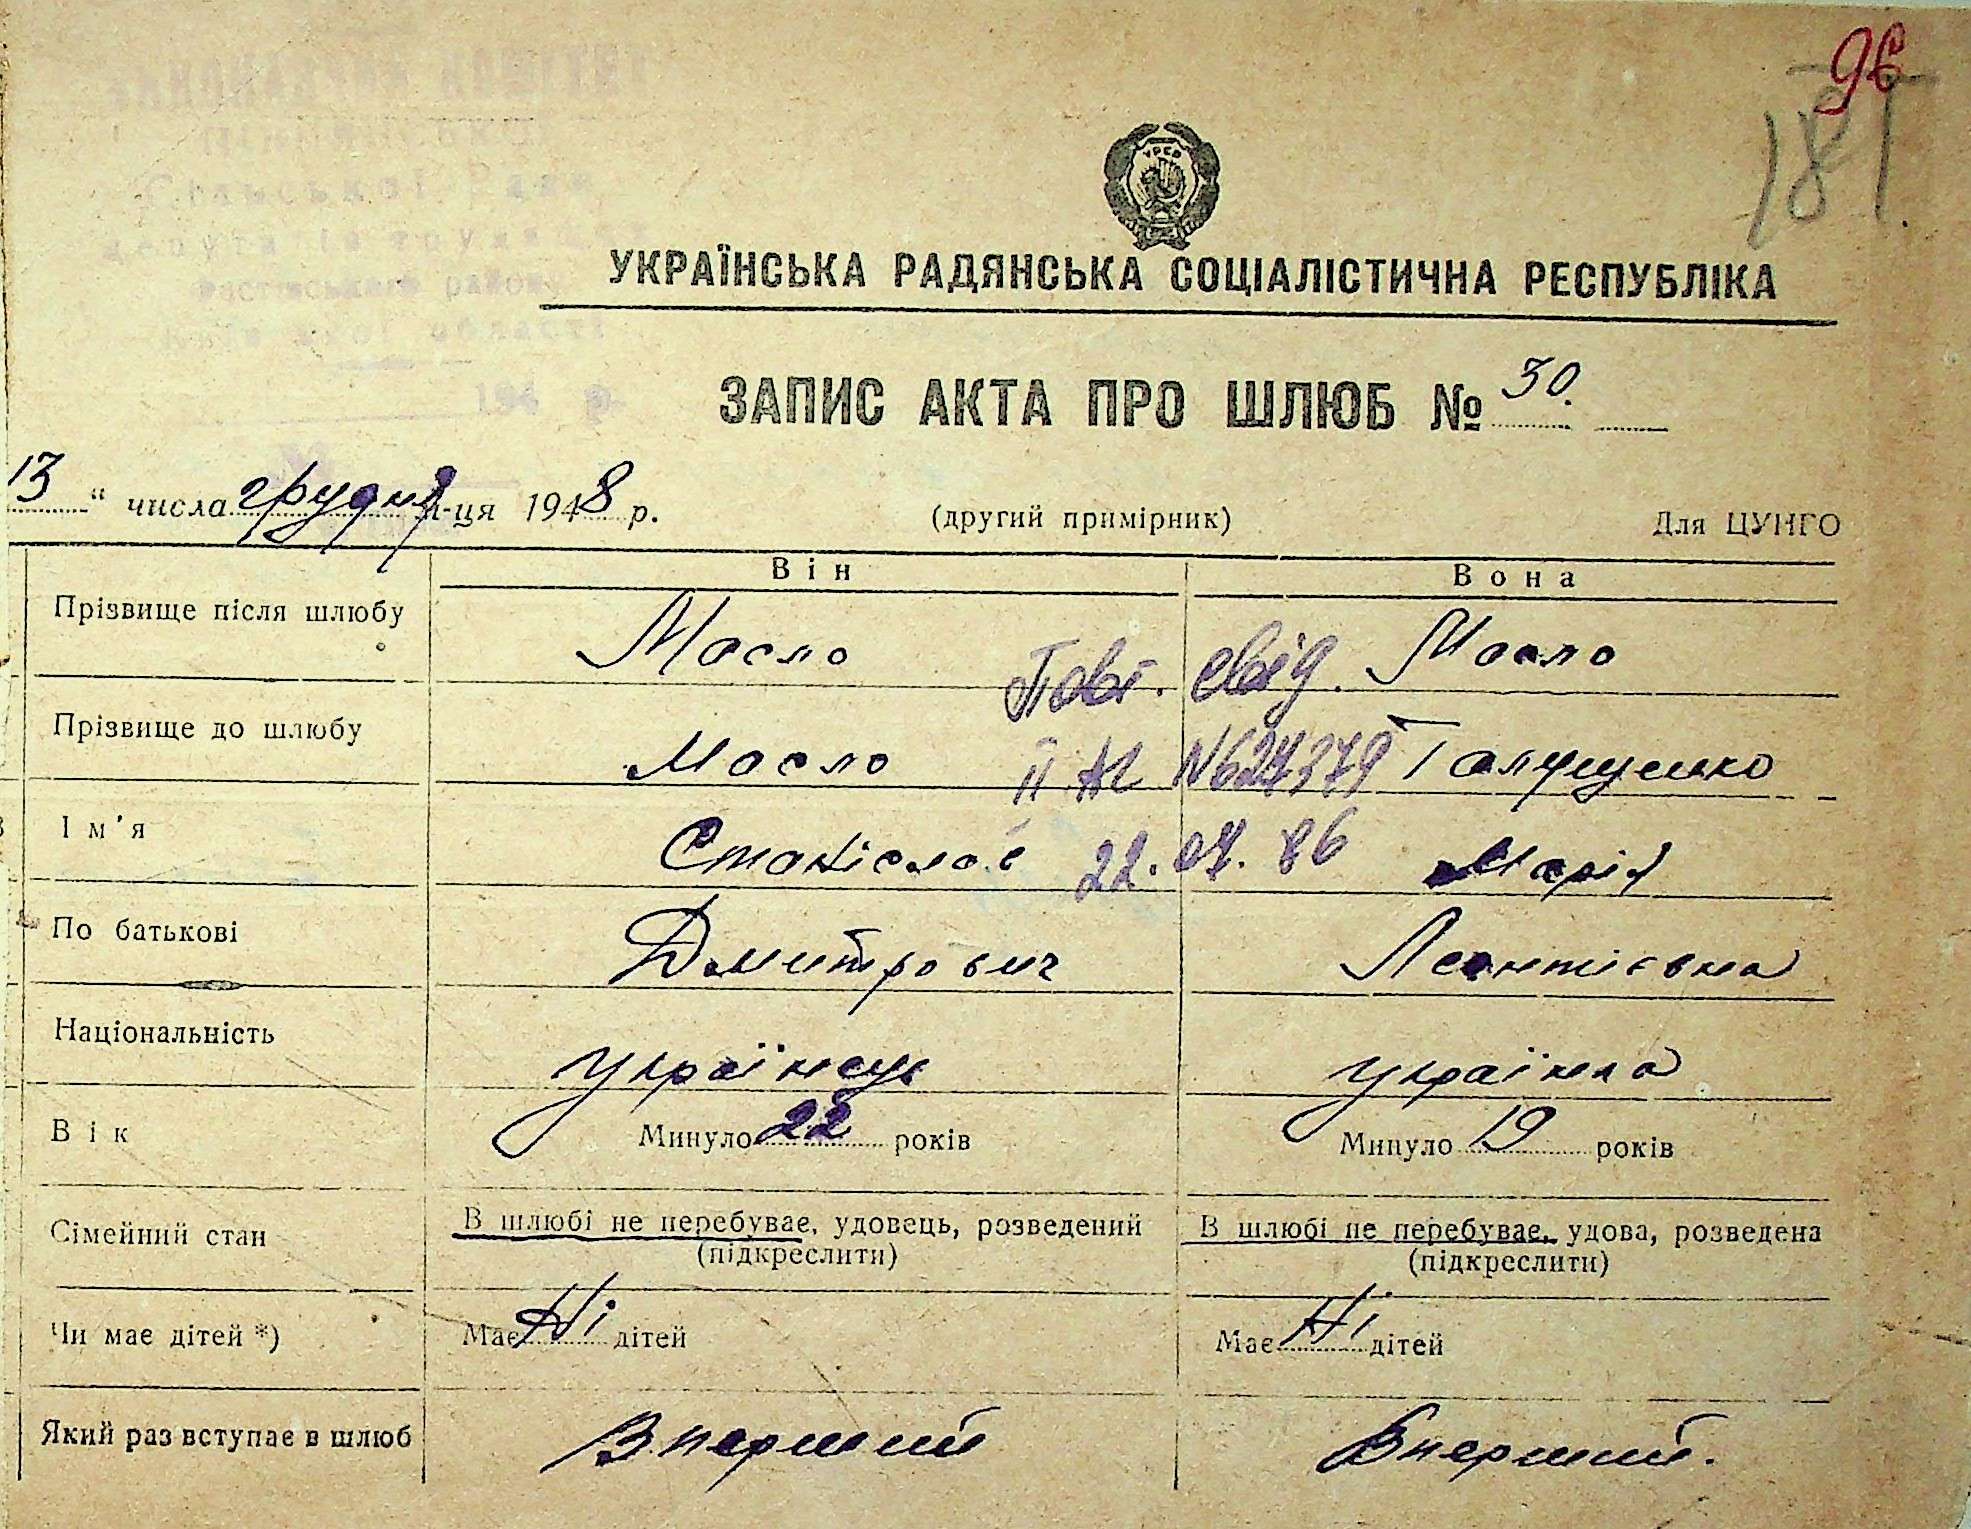 96
181
УРСР
УКРАЇНСЬКА РАДЯНСЬКА СОЦІАЛІСТИЧНА РЕСПУБЛІКА
ЗАПИС АКТА ПРО ШЛЮБ № 30.
13 " числа грудня м-ця 1948 р. (другий примірник) Для ЦУНГО
Він Вона
Прізвище після шлюбу Масло Масло
Повт. свід.
Прізвище до шлюбу Масло Галущенко
II АЛ N 624379
Ім'я Станіслав Марія
22.04.86
По батькові Дмитрович Леонтієвна
Національність українець українка
Вік Минуло 22 років Минуло 19 років
Сімейний стан В шлюбі не перебуває, удовець, розведений В шлюбі не перебуває, удова, розведена
(підкреслити) (підкреслити)
Чи має дітей *) Має Ні дітей Має Ні дітей
Який раз вступає в шлюб Вперший Вперший.